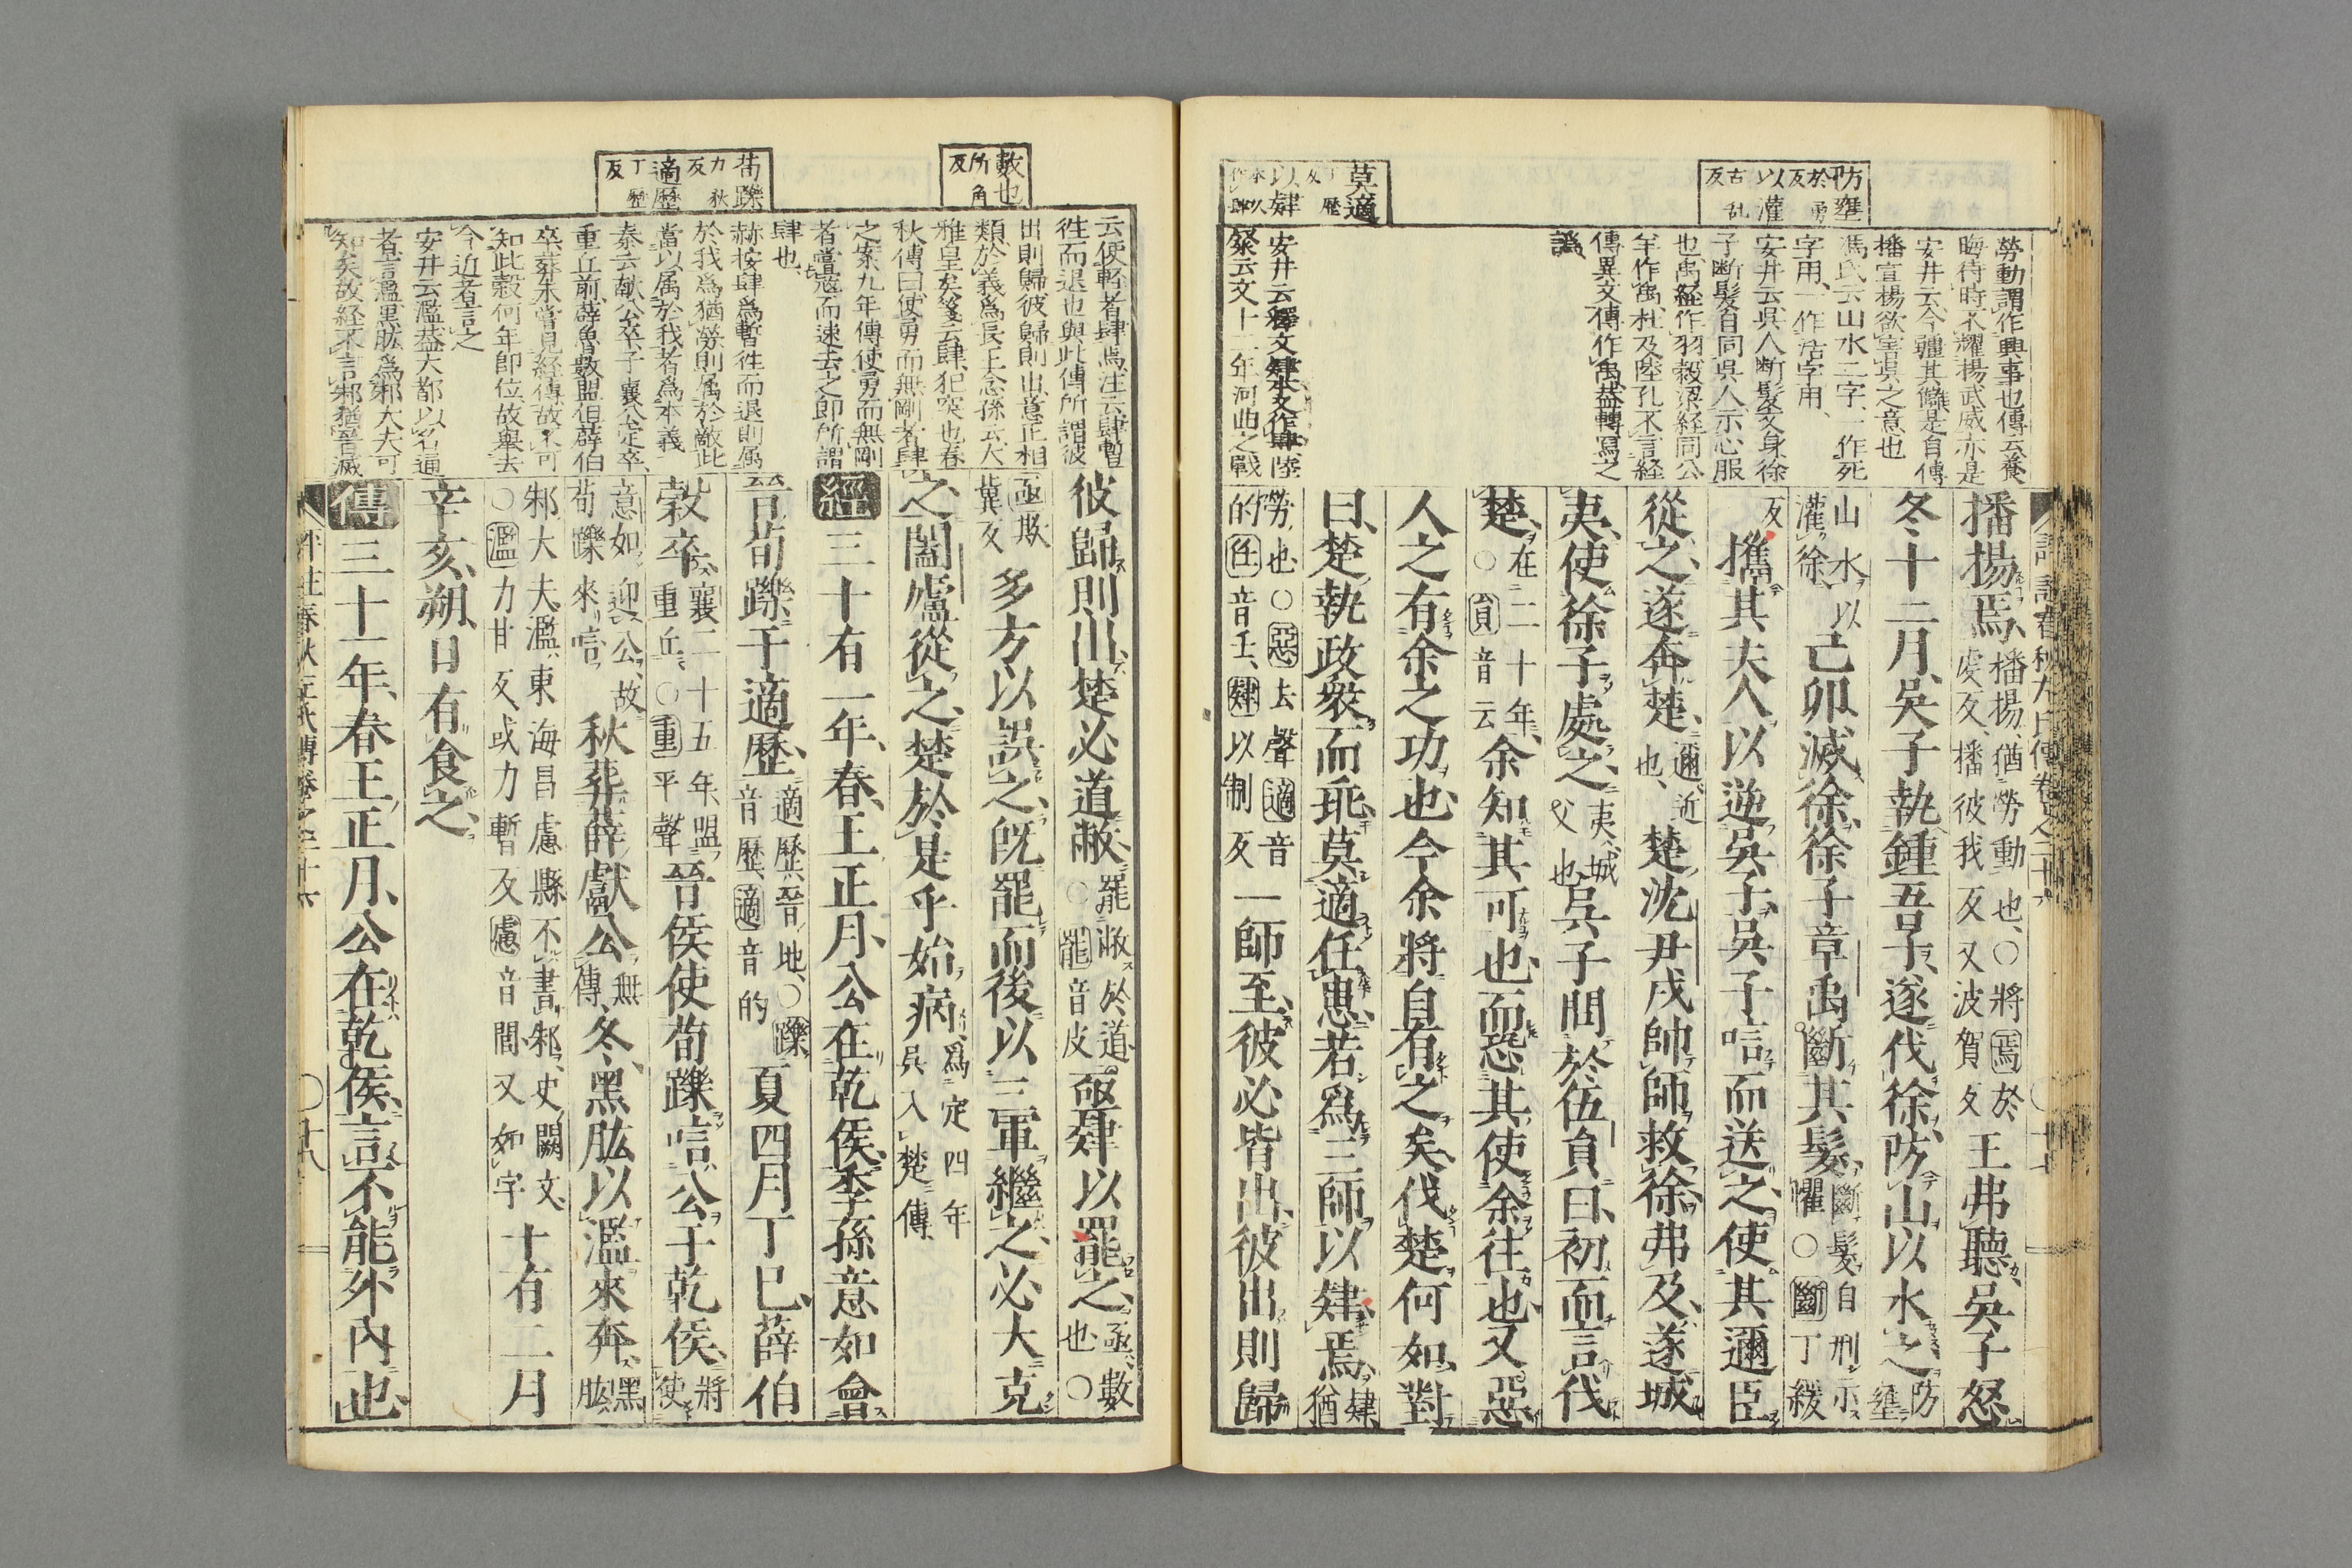 防壅
於勇反
以灌
古乱反
莫適
丁歷反
以肄
本又作肆
勞動謂作興事也傳云養
晦待時不耀揚武威亦是
安井云今疆其讎是自傳
播宣揚欲害吳之意也
馮氏云山水二字一作死
字用一作活字用
安井云吳人斷髮文身徐
子斷髮自同吳人示心服
也禹経作羽穀梁経同公
羊作禹杜及陸孔不言経
傳異文傳作禹蓋轉寫之
譌
安井云釋文肄本又作肆陸
粲云文十二年河曲之戰
播揚焉播揚猶勞動也○將焉於
虔反播彼我反又波賀反王弗聽吳子怒
冬十二月吳子執鍾吾子遂伐徐防山以水之防壅
山水以
灌徐己卯滅徐徐子章禹斷其髮斷髮自刑示
懼○斷丁緩
反攜其夫人以逆吳子吳子唁而送之使其邇臣
從之遂奔楚邇近
也楚沈尹戌帥師救徐弗及遂城
夷使徐子處之夷城
父也吳子問於伍員曰初而言伐
楚在二十年
○員音云余知其可也而恐其使余往也又惡
人之有余之功也今余將自有之矣伐楚何如對
曰楚執政衆而乖莫適任患若爲三師以肄焉肄猶
勞也○惡去聲適音
的任音壬肄以制反一師至彼必皆出彼出則歸
數也
所角反
荀躒
力秋反
適歷
丁歷反
云使輕者肆焉注云肆暫
往而退也與此傳所謂彼
出則歸彼歸則出意正相
類於義爲長王念孫云大
雅皇矣箋云肆犯突也春
秋傳曰使勇而無剛者肆
之案九年傳使勇而無剛
者嘗寇而速去之即所謂
肆也
赫按肆爲暫往而退則属
於我爲猶勞則属於敵此
當以属於我者爲本義
泰云献公卒子襄公定卒
重丘前薛魯數盟但薛伯
卒葬未嘗見経傳故不可
知此穀何年即位故舉去
今近者言之
安井云濫蓋大都以名通
者言濫黒肱爲邾大夫可
知矣故経不言邾猶晉滅
彼歸則出楚必道敝罷敝於道
○罷音皮亟肄以罷之亟數也○
亟欺
冀反多方以誤之旣罷而後以三軍繼之必大克
之闔廬從之楚於是乎始病爲定四年
吳入楚傳
經三十有一年春王正月公在乾侯季孫意如會
晉荀躒于適歷適歷晉地○躒
音歷適音的夏四月丁巳薛伯
穀卒襄二十五年盟
重丘○重平聲晉侯使荀躒唁公于乾侯將使
意如迎公故
荀躒來唁秋葬薛獻公無傳冬黑肱以濫來奔黑肱
邾大夫濫東海昌慮縣不書邾史闕文
○濫力甘反或力暫反慮音閭又如字十有二月
辛亥朔日有食之
傳三十一年春王正月公在乾侯言不能外內也